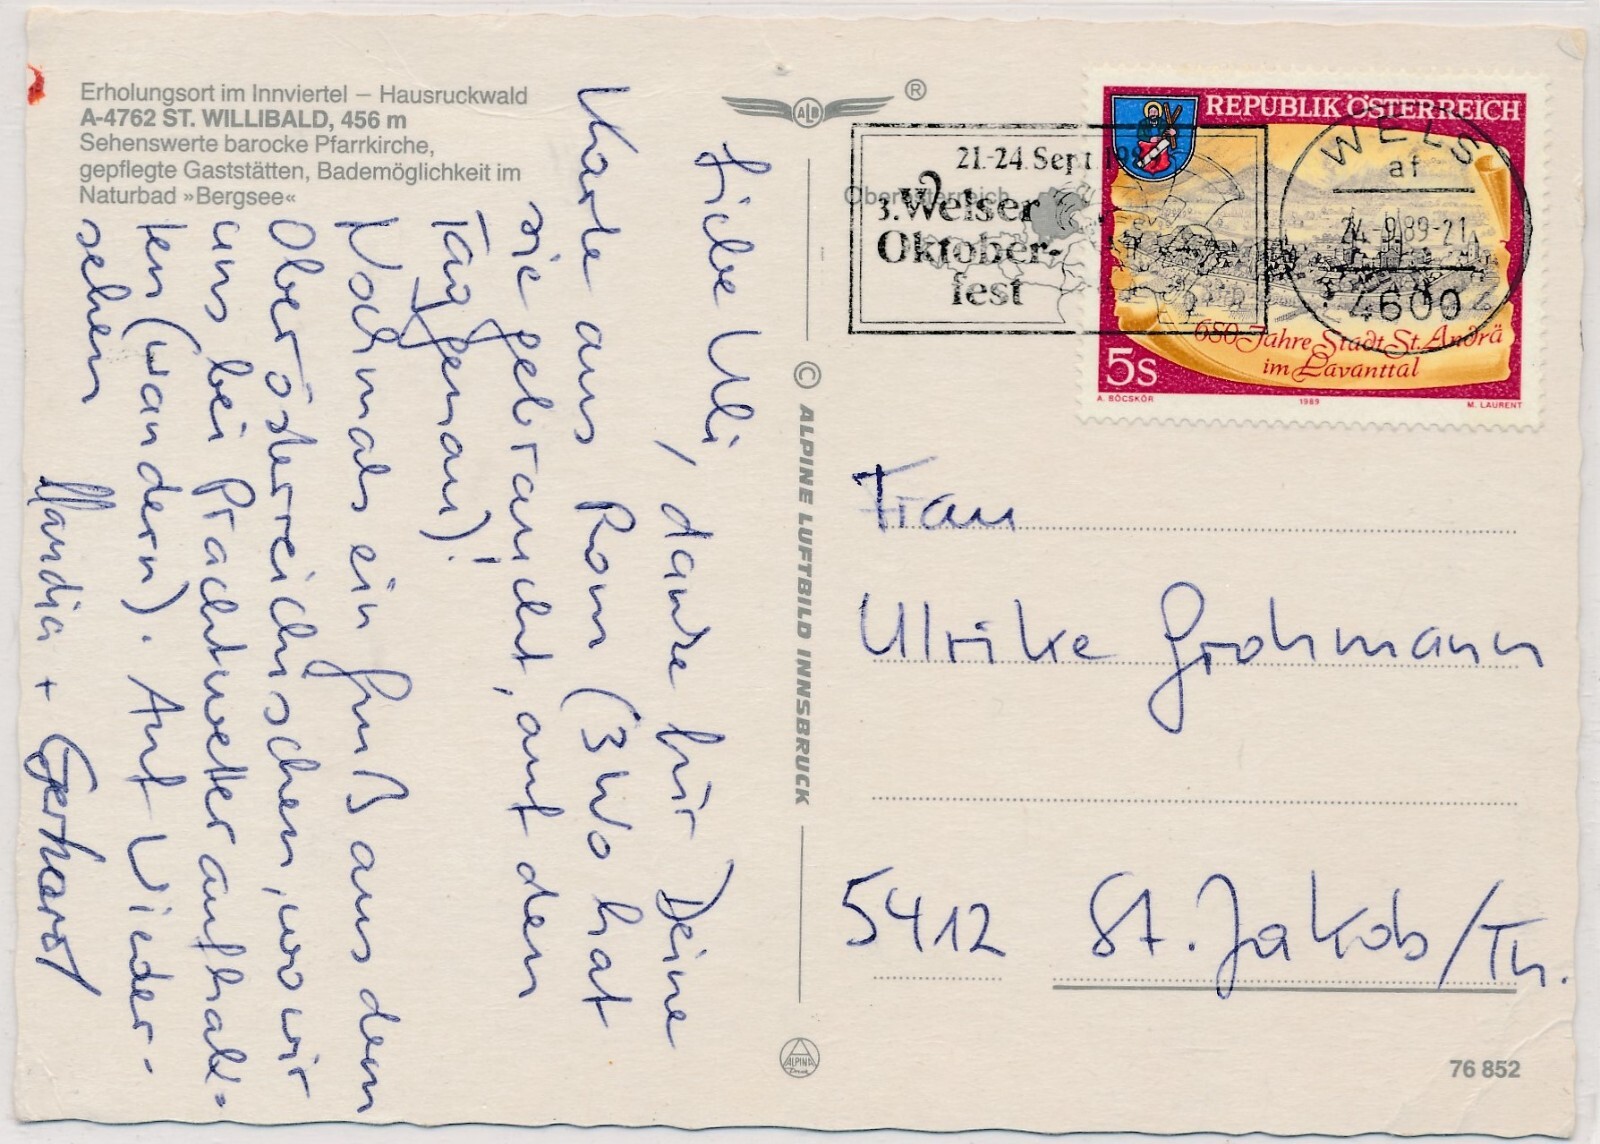 Erholungsort im Innviertel – Hausruckwald
A-4762 ST. WILLIBALD, 456 m
Sehenswerte barocke Pfarrkirche,
gepflegte Gaststätten, Bademöglichkeit im
Naturbad »Bergsee«
Liebe Uli, danke für Deine
Karte aus Rom (3 Wo hat
sie gebraucht, auf den
Tag genau)!
Nochmals ein Gruß aus dem
Oberösterreichischen, wo wir
uns bei Prachtwetter aufhal=
ten (wandern). Auf Wieder-
sehen
+ Gerhard
ALB
®
© ALPINE LUFTBILD INNSBRUCK
ALPINA
Druck
Oberösterreich
21.-24. Sept. 1989
3. Welser
Oktober-
fest
WELS
af
24.-9.89-21
4600
REPUBLIK ÖSTERREICH
650 Jahre Stadt St. Andrä
im Lavanttal
5S
A. BÖCSKÖR
1989
M. LAURENT
Frau
Ulrike Grohmann
5412 St. Jakob/Th.
76 852